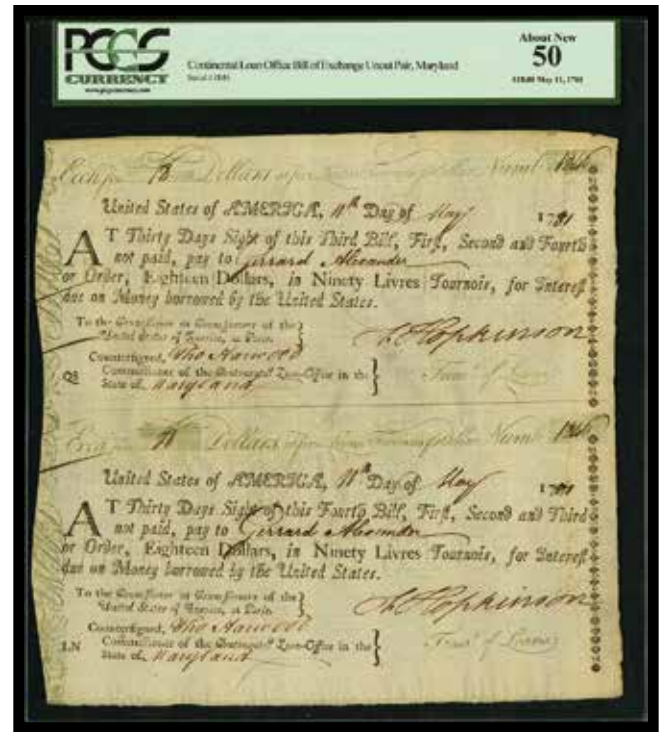 PCGS
CURRENCY
www.pcgscurrency.com
Continental Loan Office Bill of Exchange Uncut Pair, Maryland
About New
50
$18.00 May 11, 1781
18 Dollars Numb.
United States of AMERICA, 11th Day of May 1781
AT Thirty Days Sight of this Third Bill, First, Second and Fourth
not paid, pay to Gerrard Alexander
or Order, Eighteen Dollars, in Ninety Livres Tournois, for Interest
due on Money borrowed by the United States.
To the Commissioner or Commissioners of the
United States of America, at Paris.
Hopkinson
Countersigned, Tho Harwood
Commissioner of the Continental Loan-Office in the
State of Maryland
Treasr. of Loans
18 Dollars Numb.
United States of AMERICA, 11th Day of May 1781
AT Thirty Days Sight of this Fourth Bill, First, Second and Third
not paid, pay to Gerrard Alexander
or Order, Eighteen Dollars, in Ninety Livres Tournois, for Interest
due on Money borrowed by the United States.
To the Commissioner or Commissioners of the
United States of America, at Paris.
Hopkinson
Countersigned, Tho Harwood
LN Commissioner of the Continental Loan-Office in the
State of Maryland
Treasr. of Loans